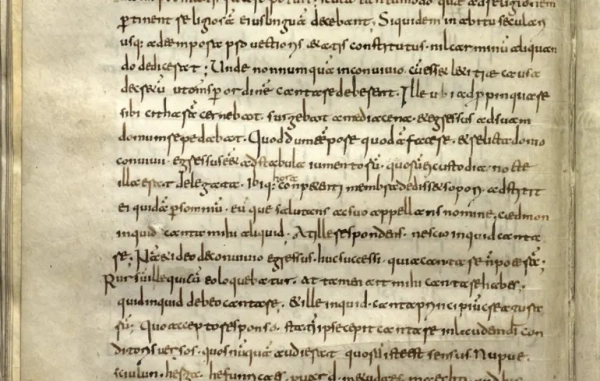 religionem
ꝑtinent religiosā eius linguā decebant. Siquidem in habitu seculari
usq; ad tempora ꝓuectioris ætatis constitutus. nil carminū aliquan
do dedicerat; Unde nonnumquā in conuiuio. cū esset lætitiæ causa
decretū ut omnes ꝑ ordinē cantare deberent. Ille ubi adpropinquare
sibi citharā cernebat. surgebat a media cena. & egressus ad suam
domum repedabat. Quod dum tempore quodā faceret. & relicta domo
conuiuii egressus eēt ad stabula iumentorū. quorū ei custodia nocte
illa erat delegata. ibiq; hora conpetenti membra dedisset sopori. adstitit
ei quidā ꝑ somniū. eūque salutans ac suo appellans nomine. cædmon
inquid canta mihi aliquid. At ille respondens. nescio inquid canta
re; Nā & ideo de conuiuio egressus. huc successi. quia cantare n̄ poterā;
Rursū ille qui cū eo loquebatur. at tamen ait mihi cantare habes.
quid inquid debeo cantare. & ille inquid. canta principiū creatura
rū. Quo accepto responso. statī ipse cepit cantare in laudem dī con
ditoris uersos. quos nūquā audierat quorū iste est sensus Nu pue